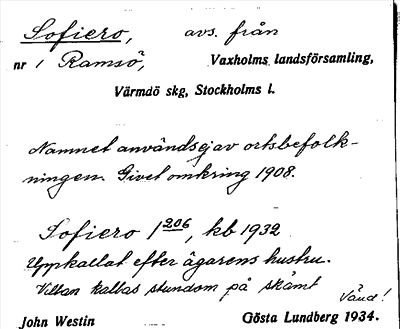 Sofiero, avs. från
nr 1 Ramsö, Vaxholms landsförsamling,
Värmdö skg, Stockholms l.
Namnet användes ej av ortsbefolk-
ningen. Givet omkring 1908.
Sofiero 1 206, kb 1932
Uppkallat efter ägarens hustru.
Villan kallas stundom på skämt
Vänd!
John Westin Gösta Lundberg 1934.